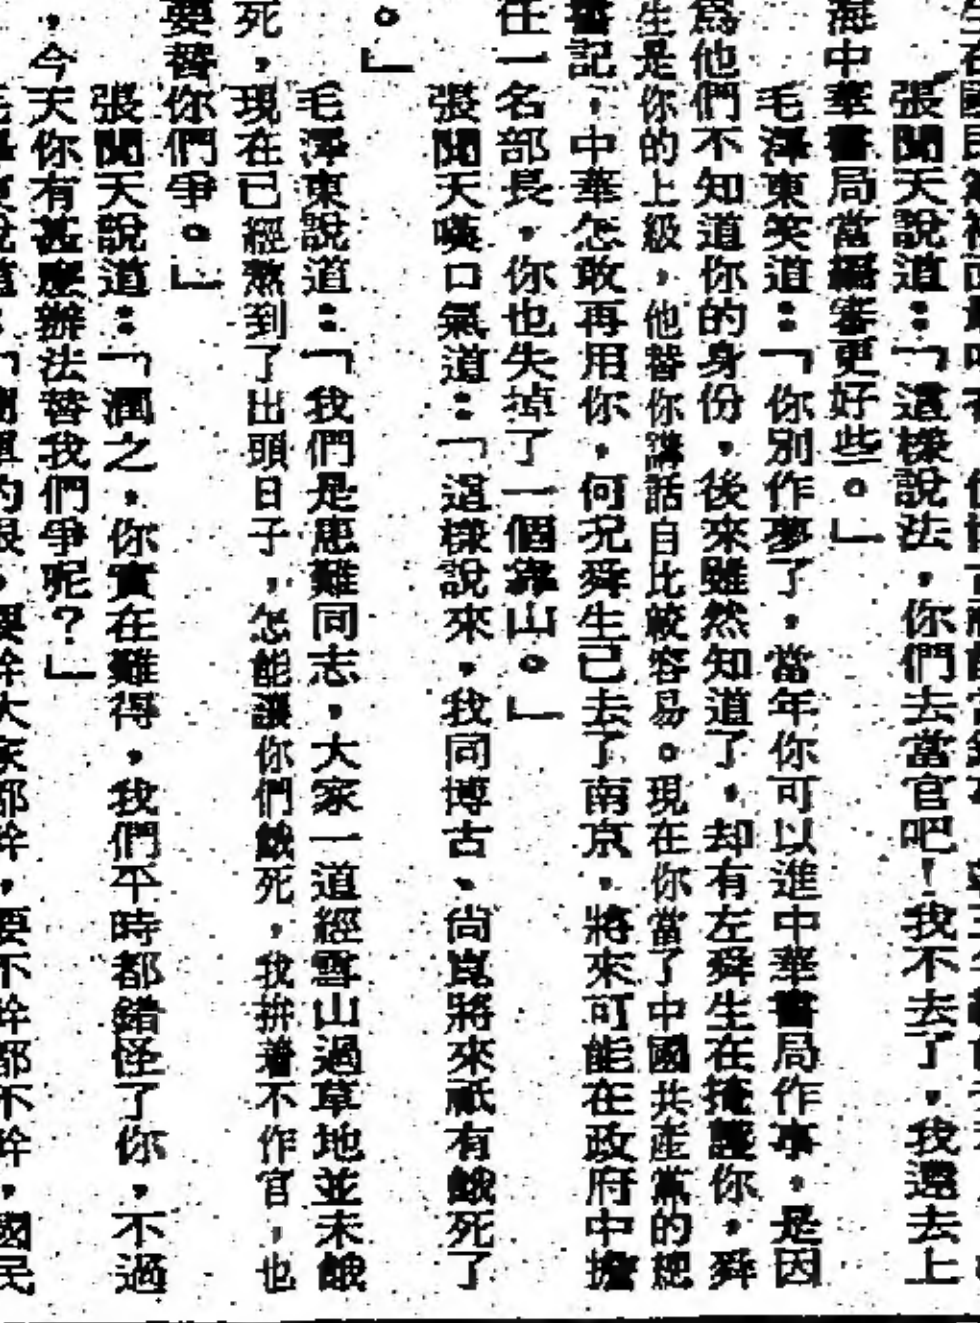 張聞天說道：「這樣說法，你們去當官吧！我不去了，我還去上
海中華書局當編審更好些。」
毛澤東笑道：「你別作夢了，當年你可以進中華書局作事，是因
爲他們不知道你的身份，後來雖然知道了，却有左舜生在掩護你，舜
生是你的上級，他替你講話自比較容易。現在你當了中國共產黨的總
書記，中華怎敢再用你，何況舜生已去了南京，將來可能在政府中擔
任一名部長，你也失掉了一個靠山。」
張聞天嘆口氣道：「這樣說來，我同博古、尚崑將來祇有餓死了
。」
毛澤東說道：「我們是患難同志，大家一道經雪山過草地並未餓
死，現在已經熬到了出頭日子，怎能讓你們餓死，我拚着不作官，也
要替你們爭。」
張聞天說道：「潤之，你實在難得，我們平時都錯怪了你，不過
，今天你有甚麼辦法替我們爭呢？」
毛澤東說道：「簡單的很，要幹大家都幹，要不幹都不幹，國民